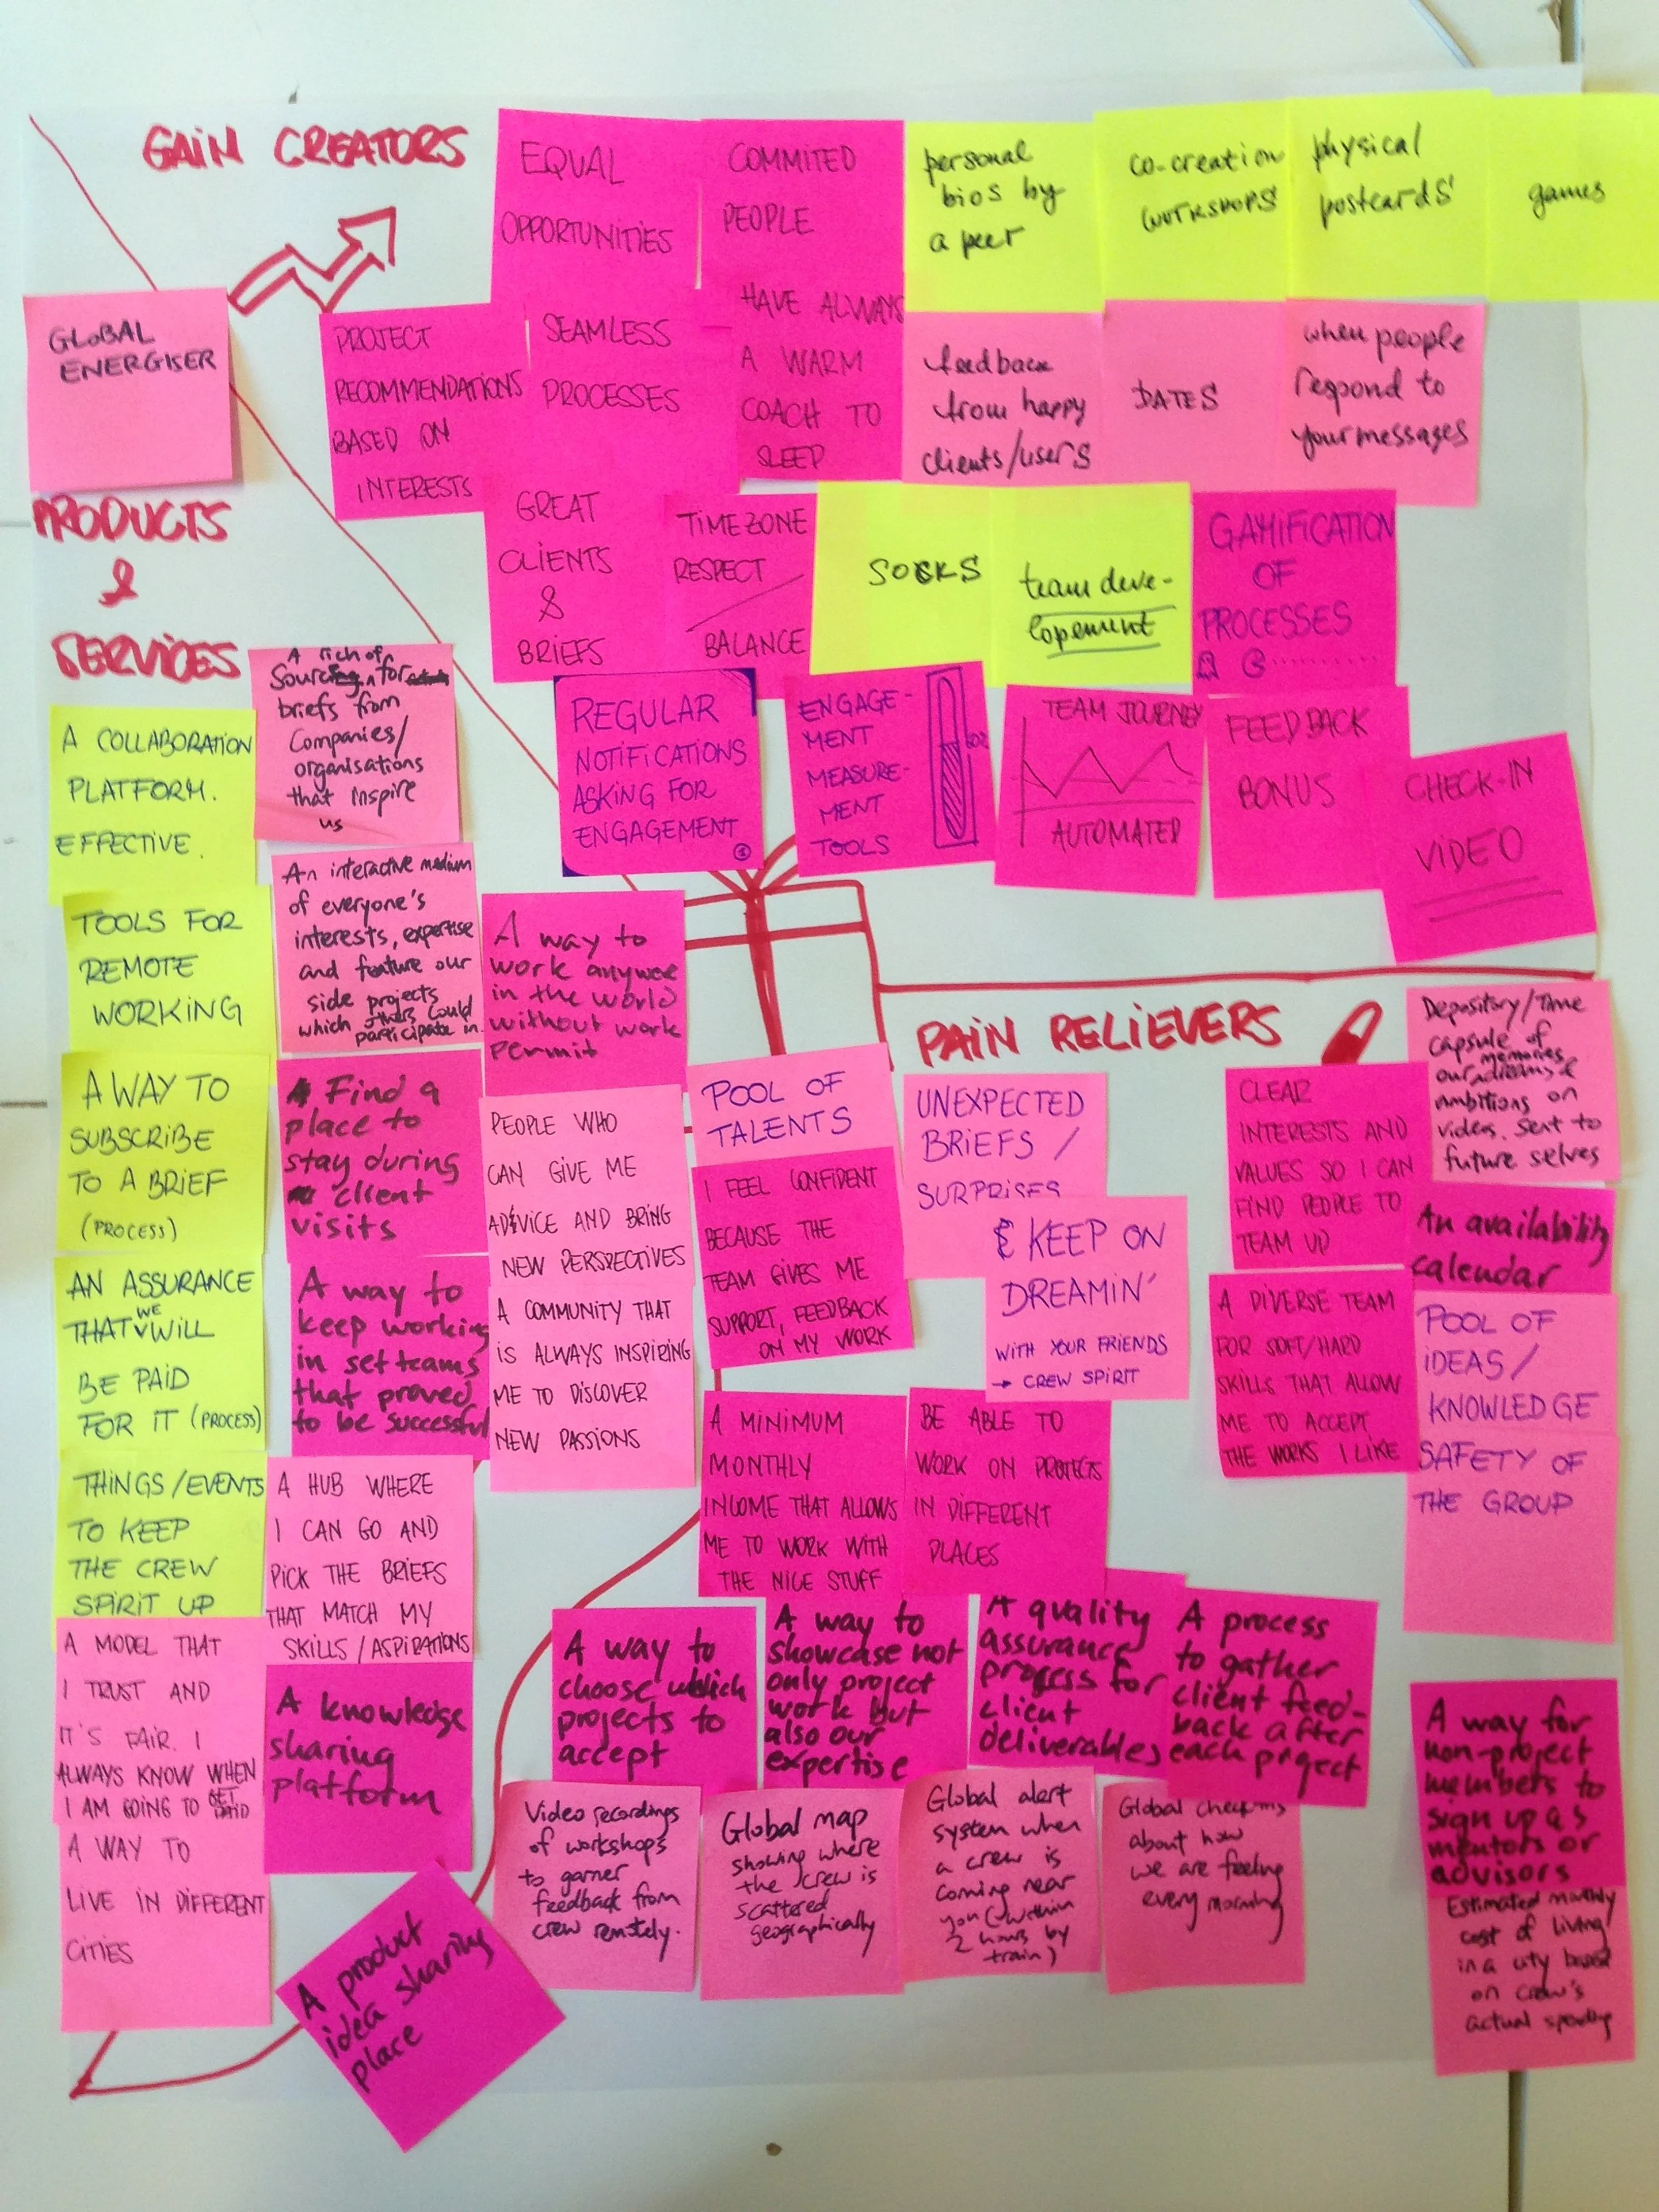 GAIN CREATORS
EQUAL
OPPORTUNITIES
COMMITED
PEOPLE
personal
bios by
a peer
co-creation
WORKSHOPS
physical
postcards
games
GLOBAL
ENERGISER
PROJECT
RECOMMENDATIONS
BASED ON
INTERESTS
SEAMLESS
PROCESSES
HAVE ALWAYS
A WARM
COACH TO
SLEEP
feedback
from happy
clients/users
DATES
when people
respond to
your messages
GREAT
CLIENTS
&
BRIEFS
TIMEZONE
RESPECT /
BALANCE
SOCKS
team deve-
lopement
GAMIFICATION
OF
PROCESSES
REGULAR
NOTIFICATIONS
ASKING FOR
ENGAGEMENT
ENGAGE-
MENT
MEASURE-
MENT
TOOLS
TEAM JOURNEY
AUTOMATED
FEEDBACK
BONUS
CHECK-IN
VIDEO
PRODUCTS
&
SERVICES
A COLLABORATION
PLATFORM.
EFFECTIVE.
TOOLS FOR
REMOTE
WORKING
A WAY TO
SUBSCRIBE
TO A BRIEF
(PROCESS)
AN ASSURANCE
THAT WE WILL
BE PAID
FOR IT (PROCESS)
THINGS/EVENTS
TO KEEP
THE CREW
SPIRIT UP
A MODEL THAT
I TRUST AND
IT'S FAIR. I
ALWAYS KNOW WHEN
I AM GOING TO GET PAID
A WAY TO
LIVE IN DIFFERENT
CITIES
A rich of
Source for
briefs from
Companies/
organisations
that inspire
us
An interactive medium
of everyone's
interests, expertise
and feature our
side projects
which others could
participate in
Find a
place to
stay during
client
visits
A way to
keep working
in set teams
that proved
to be successful
A HUB WHERE
I CAN GO AND
PICK THE BRIEFS
THAT MATCH MY
SKILLS/ASPIRATIONS
A knowledge
sharing
platform
A product
idea sharing
place
A way to
work anywere
in the world
without work
permit
PEOPLE WHO
CAN GIVE ME
ADVICE AND BRING
NEW PERSPECTIVES
A COMMUNITY THAT
IS ALWAYS INSPIRING
ME TO DISCOVER
NEW PASSIONS
PAIN RELIEVERS
POOL OF
TALENTS
I FEEL CONFIDENT
BECAUSE THE
TEAM GIVES ME
SUPPORT, FEEDBACK
ON MY WORK
UNEXPECTED
BRIEFS /
SURPRISES
& KEEP ON
DREAMIN'
WITH YOUR FRIENDS
→ CREW SPIRIT
CLEAR
INTERESTS AND
VALUES SO I CAN
FIND PEOPLE TO
TEAM UP
Depository/Time
capsule of
memories
our dreams &
ambitions on
video. Sent to
future selves
An availability
calendar
A DIVERSE TEAM
FOR SOFT/HARD
SKILLS THAT ALLOW
ME TO ACCEPT
THE WORKS I LIKE
POOL OF
IDEAS/
KNOWLEDGE
SAFETY OF
THE GROUP
A MINIMUM
MONTHLY
INCOME THAT ALLOWS
ME TO WORK WITH
THE NICE STUFF
BE ABLE TO
WORK ON PROJECTS
IN DIFFERENT
PLACES
A way to
choose which
projects to
accept
A way to
showcase not
only project
work but
also our
expertise
A quality
assurance
process for
client
deliverables
A process
to gather
client feed-
back after
each project
Video recordings
of workshops
to garner
feedback from
crew remotely.
Global map
showing where
the crew is
scattered
geographically
Global alert
system when
a crew is
coming near
you (within
2 hours by
train)
Global check-ins
about how
we are feeling
every morning
A way for
non-project
members to
sign up as
mentors or
advisors
Estimated monthly
cost of living
in a city based
on crew's
actual spending